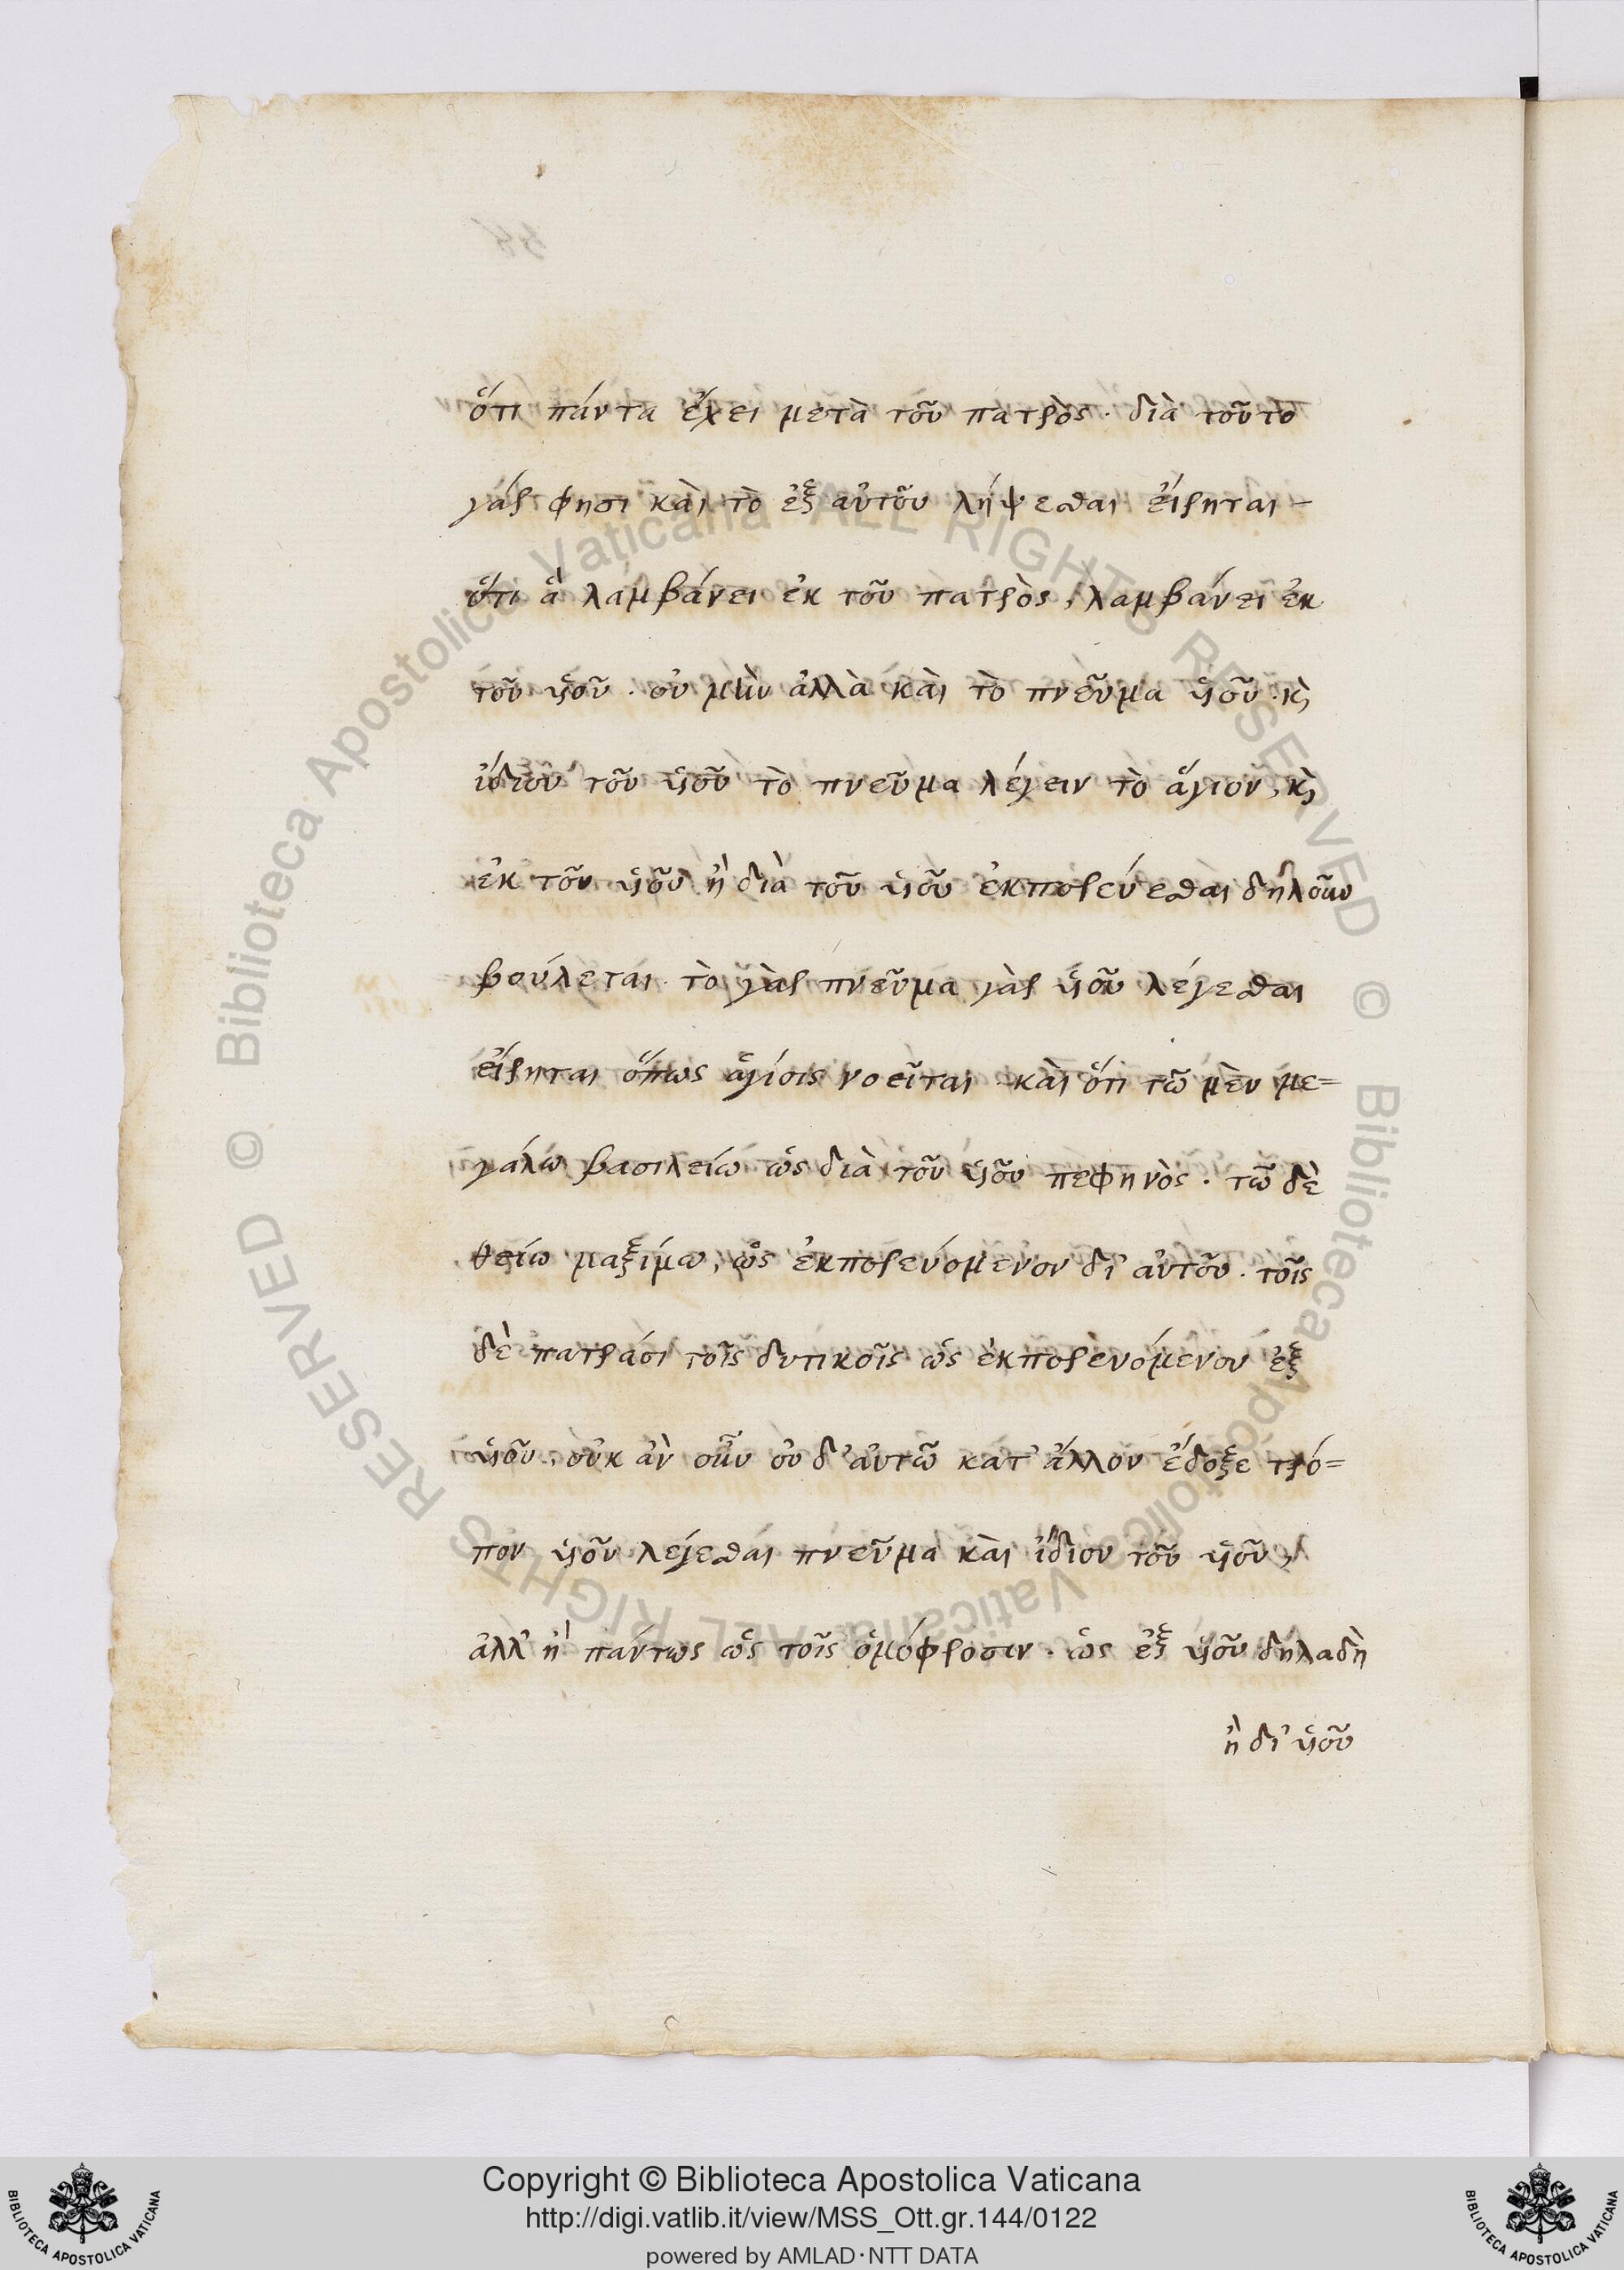 ὅτι πάντα ἔχει μετὰ τοῦ πατρὸς · διὰ τοῦτο
γάρ φησι καὶ τὸ ἐξ αὐτοῦ λήψεσθαι εἴρηται –
ὅτι ἃ λαμβάνει ἐκ τοῦ πατρὸς, λαμβάνει ἐκ
τοῦ ὑιοῦ · οὐ μὴν ἀλλὰ καὶ τὸ πνεῦμα ὑιοῦ · κὶ
ἴδιον τοῦ ὑιοῦ τὸ πνεῦμα λέγειν τὸ ἅγιον, κὶ
ἐκ τοῦ ὑιοῦ ἢ διὰ τοῦ ὑιοῦ ἐκπορεύεσθαι δηλοῦν
βούλεται · τὸ γὰρ πνεῦμα γὰρ ὑιοῦ λέγεσθαι
εἴρηται ὅπως ἁγίοις νοεῖται · καὶ ὅτι τῶ μὲν με=
γάλω βασιλείω ὡς διὰ τοῦ ὑιοῦ πεφηνὸς · τῶ δὲ
θείω μαξίμω, ὡς ἐκπορευόμενον δι' αὐτοῦ · τοῖς
δὲ πατράσι τοῖς δυτικοῖς ὡς ἐκπορευόμενον ἐξ
ὑιοῦ · οὐκ ἂν οὖν οὐδ' αὐτῶ κατ' ἄλλον ἔδοξε τρό=
πον ὑιοῦ λέγεσθαι πνεῦμα καὶ ἴδιον τοῦ ὑιοῦ,
ἀλλ' ἢ πάντως ὡς τοῖς ὁμόφροσιν · ὡς ἐξ ὑιοῦ δηλαδὴ
ἢ δι' ὑιοῦ
Copyright © Biblioteca Apostolica Vaticana
http://digi.vatlib.it/view/MSS_Ott.gr.144/0122
powered by AMLAD·NTT DATA
BIBLIOTECA APOSTOLICA VATICANA
BIBLIOTECA APOSTOLICA VATICANA
© Biblioteca Apostolica Vaticana ALL RIGHTS RESERVED
© Biblioteca Apostolica Vaticana ALL RIGHTS RESERVED